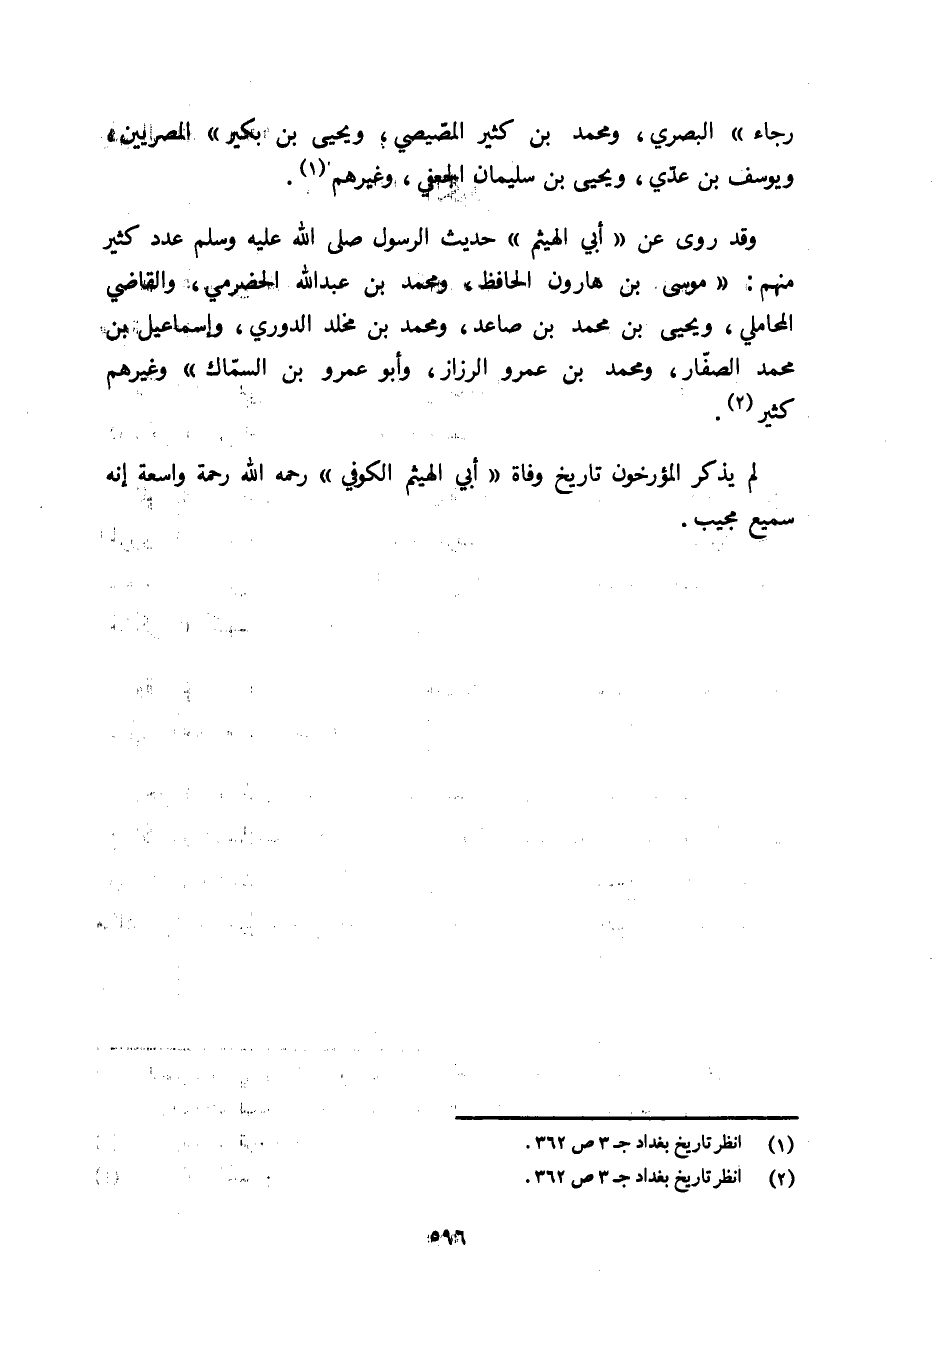 رجاء » البصري ، ومحمد بن كثير المصّيصي ، ويحيى بن بكير » المصريين ،
ويوسف بن عدّي ، ويحيى بن سليمان الجعفي ، وغيرهم (١) .
وقد روى عن « أبي الهيثم » حديث الرسول صلى الله عليه وسلم عدد كثير
منهم : « موسى بن هارون الحافظ ، ومحمد بن عبدالله الحضرمي ، والقاضي
المحاملي ، ويحيى بن محمد بن صاعد ، ومحمد بن مخلد الدوري ، وإسماعيل بن
محمد الصفّار ، ومحمد بن عمرو الرزاز ، وأبو عمرو بن السمّاك » وغيرهم
كثير (٢) .
لم يذكر المؤرخون تاريخ وفاة « أبي الهيثم الكوفي » رحمه الله رحمة واسعة إنه
سميع مجيب .
(١) انظر تاريخ بغداد جـ ٣ ص ٣٦٢ .
(٢) انظر تاريخ بغداد جـ ٣ ص ٣٦٢ .
٥٩٦